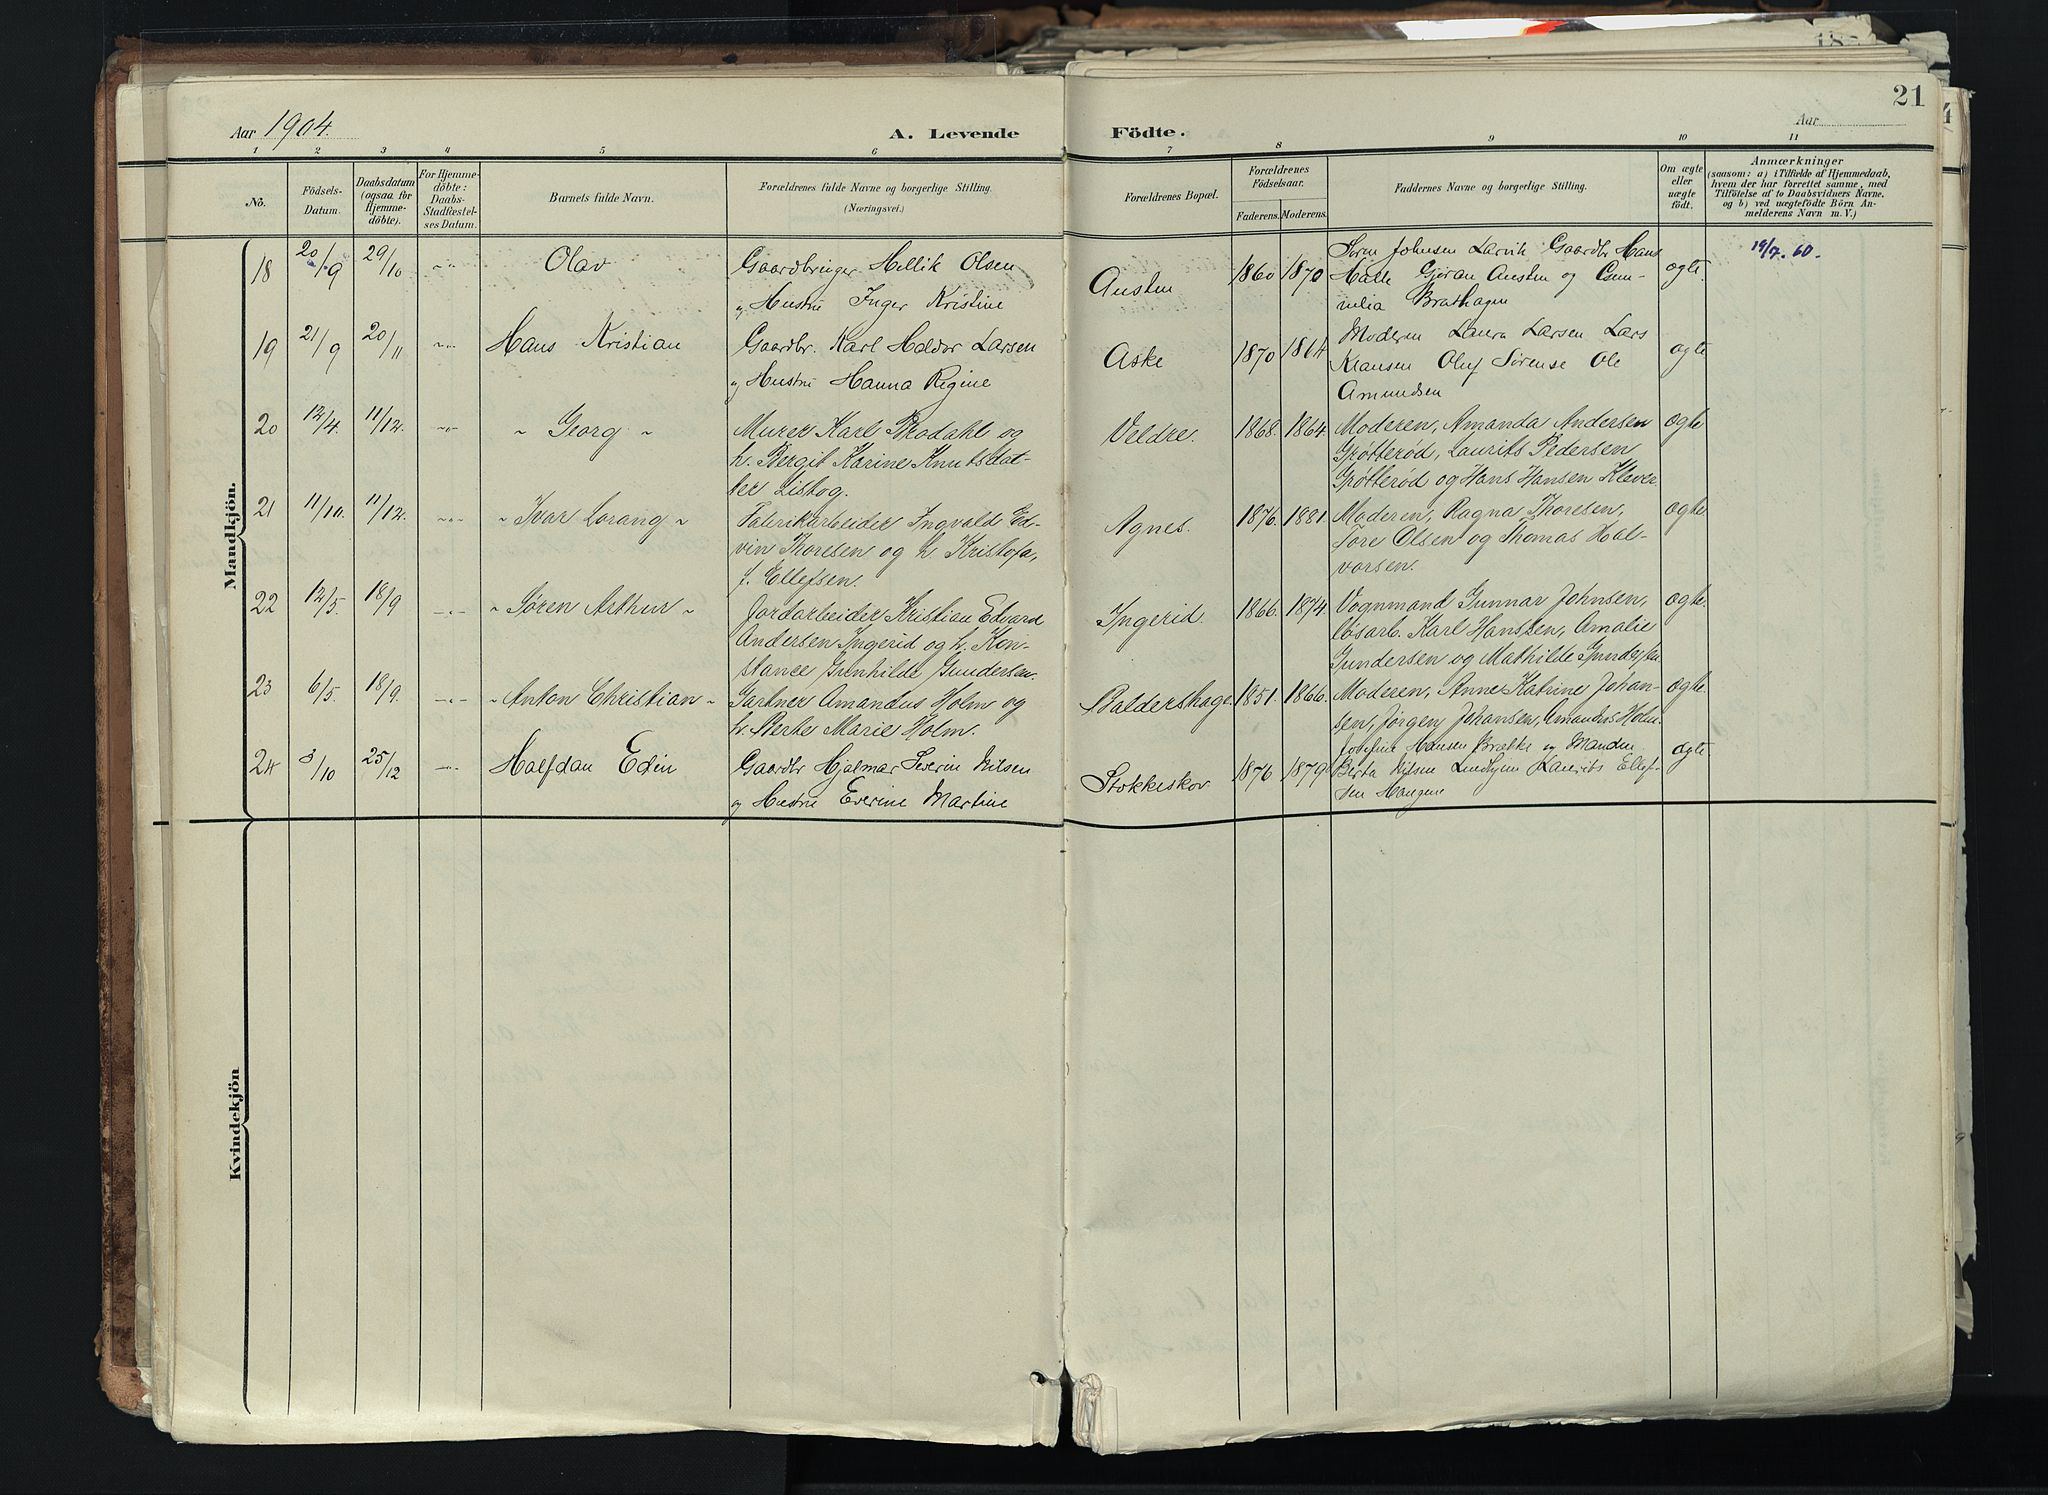 21
Aar 1904.
A. Levende Födte.
Aar
1 2 3 4 5 6 7 8 9 10 11
No.
Födsels-Datum.
Daabsdatum (ogsaa for Hjemme-döbte).
For Hjemme-döbte: Daabs-Stadfæstel-ses Datum.
Barnets fulde Navn.
Forældrenes fulde Navne og borgerlige Stilling.
(Næringsvei.)
Forældrenes Bopæl.
Forældrenes Födselsaar.
Faderens. Moderens.
Faddernes Navne og borgerlige Stilling.
Om ægte eller uægte födt.
Anmærkninger
(saasom: a) i Tilfælde af Hjemmedaab,
hvem der har forrettet samme, med
Tilföielse af to Daabsvidners Navne.
og b) ved uægtefödte Börn An-
melderens Navn m. V.)
Mandkjön.
18 20/9 29/10 Olav Gaardbruger Hellik Olsen
og Hustru Inger Kristine
Austen 1860 1870
Sørn Johnsen Larvik Gaardbr Hans
Halle Gjøran Austen og
Brathagen
ægte 19/7. 60.
19 21/9 20/11 Hans Kristian Gaardbr. Karl Haldor Larsen
og Hustru Hanna Regine
Aske 1870 1864
Modern Laura Larsen Lars
Klausen Oluf Sørense Ole
Amundsen
ægte
20 12/4. 11/12. " Georg " Murer Karl Thodahl og
h. Bergit Karine Knutsdat-
ter Liskog.
Veldre. 1868. 1864.
Moderen, Amanda Andersen
Grøtterød, Laurits Pedersen
Grøtterød og Hans Hansen Klever.
ægte
21 11/10. 11/12. " Ivar Lorang " Fabrikarbeider Ingvald Ed-
vin Thoresen og h. Kristofa,
f. Ellefsen.
Agnes. 1876. 1881.
Moderen, Ragna Thoresen,
Tore Olsen og Thomas Hal-
vorsen.
ægte
22 12/5. 18/9 " Søren Arthur " Jordarbeider Kristian Edvard
Andersen Ingerid og h. Kon-
stance Grenhilde Gundersen.
Ingerid. 1866. 1874.
Vognmand Gunnar Johnsen,
løsarb. Karl Hanssen, Amalie
Gundersen og Mathilde Gundersen
ægte.
23 6/5. 18/9. " Anton Christian " Gartner Amandus Holm og
h. Berte Marie Holm.
Baldershage 1851. 1866.
Moderen, Anne Katrine Johan-
sen, Jørgen Johansen, Amandus Holm.
ægte.
24 3/10 25/12 Halfdan Edin Gaardbr Hjalmar Severin Nilsen
og Hustru Everine Martine
Stokkeskov 1876 1879
Josefine Hansen Brække og Manden
Berta Nilsen Laurits Ellef-
sen Haugene
ægte
Kvindekjön